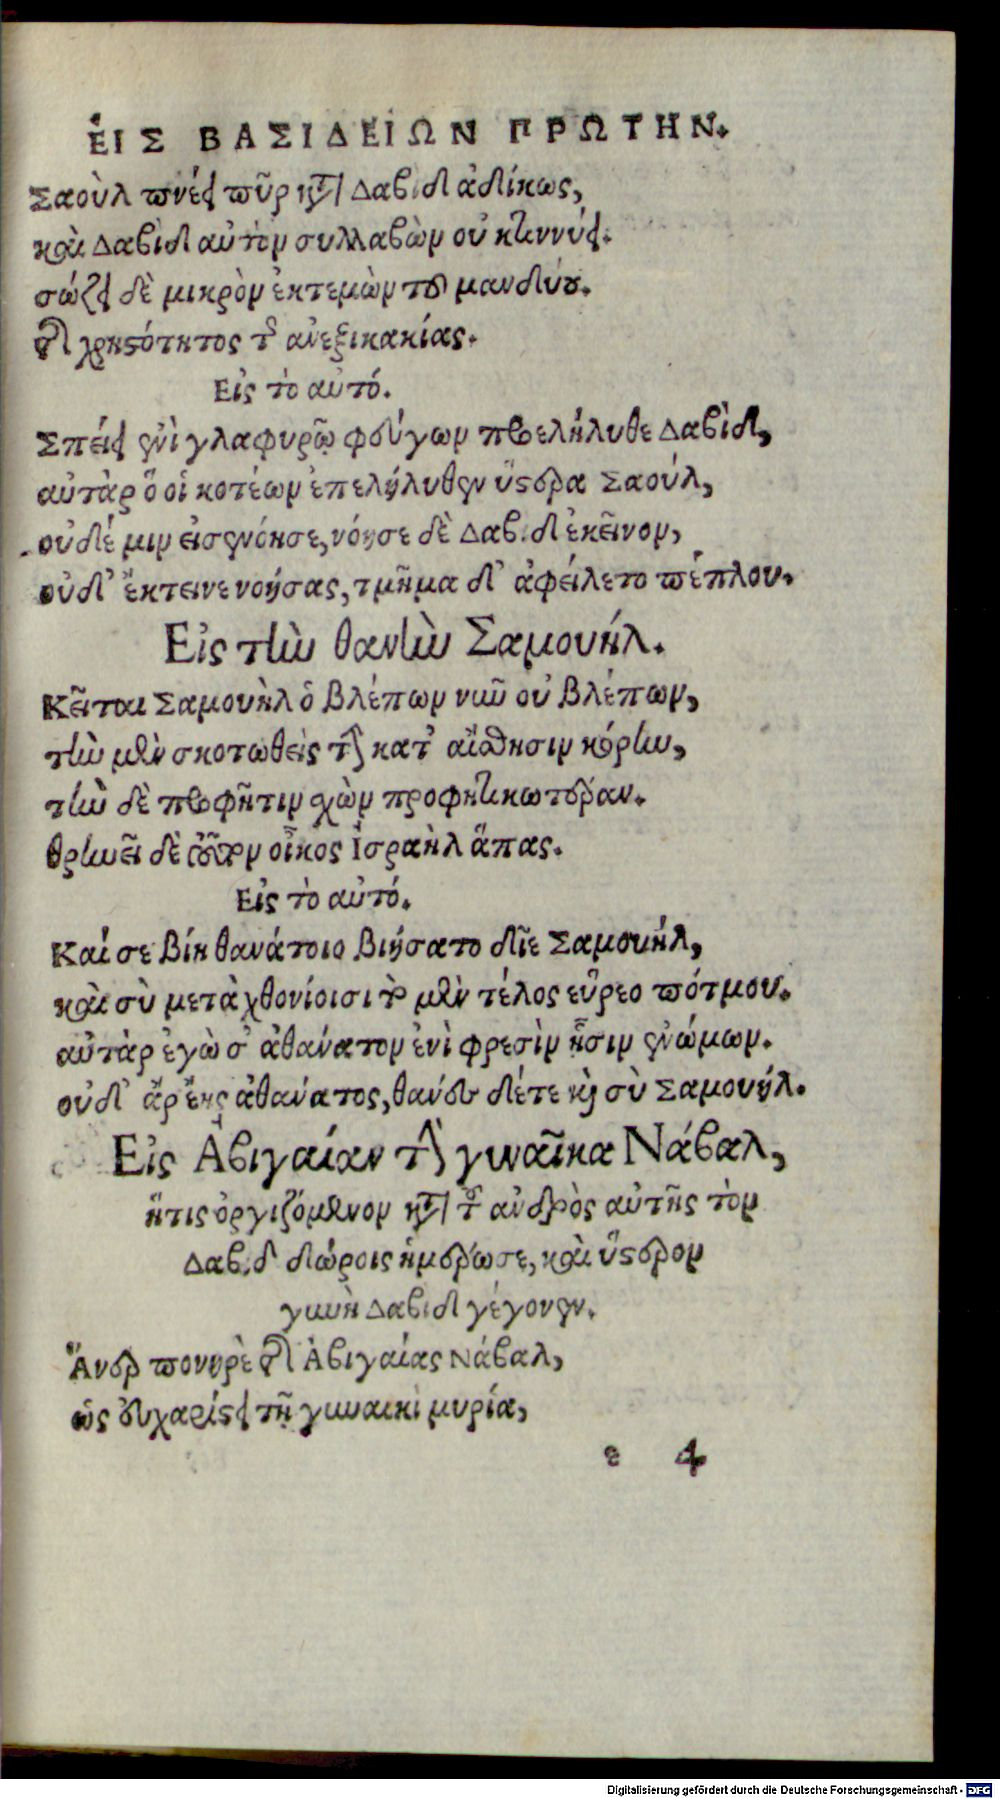 ΕἸΣ ΒΑΣΙΔΕΙΩΝ ΠΡΩΤΗΝ.
Σαοὺλ πνέει πῦρ κατὰ Δαβὶδ ἀδίκως,
καὶ Δαβὶδ αὐτὸν συλλαβὼν οὐ κτιννύει.
σώζει δὲ μικρὸν ἐκτεμὼν τοῦ μανδύου.
φεῦ χρηστότητος τῆς ἀνεξικακίας.
Εἰς τὸ αὐτό.
Σπέει ἐνὶ γλαφυρῷ φεύγων προελήλυθε Δαβὶδ,
αὐτὰρ ὅ οἱ κοτέων ἐπελήλυθεν ὕστερα Σαούλ,
οὐδέ μιν εἰσενόησε, νόησε δὲ Δαβὶδ ἐκεῖνον,
οὐδ' ἔκτεινε νοήσας, τμῆμα δ' ἀφείλετο πέπλου.
Εἰς τὴν θανὴν Σαμουήλ.
Κεῖται Σαμουὴλ ὁ βλέπων νῦν οὐ βλέπων,
τὴν μὲν σκοτωθεὶς τὴν κατ' αἴσθησιν κόρην,
τὴν δὲ προφῆτιν σχὼν προφητικωτέραν.
θρηνεῖ δὲ τοῦτον οἶκος Ἰσραὴλ ἅπας.
Εἰς τὸ αὐτό.
Καί σε βίη θανάτοιο βιήσατο δῖε Σαμουήλ,
καὶ σὺ μετὰ χθονίοισι τὸ μὲν τέλος εὕρεο πότμου.
αὐτὰρ ἐγὼ σ' ἀθάνατον ἐνὶ φρεσὶν ᾗσιν ἐνώμων.
οὐδ' ἄρ' ἔης ἀθάνατος, θάνες δέ τε καὶ σὺ Σαμουήλ.
Εἰς Ἀβιγαίαν τὴν γυναῖκα Νάβαλ,
ἥτις ὀργιζόμενον κατὰ τοῦ ἀνδρὸς αὐτῆς τὸν
Δαβὶδ δώροις ἡμέρωσε, καὶ ὕστερον
γυνὴ Δαβὶδ γέγονεν.
Ἄνερ πονηρὲ τῆς Ἀβιγαίας Νάβαλ,
ὡς εὐχαρίστει τῇ γυναικὶ μυρία,
e 4
Digitalisierung gefördert durch die Deutsche Forschungsgemeinschaft - DFG